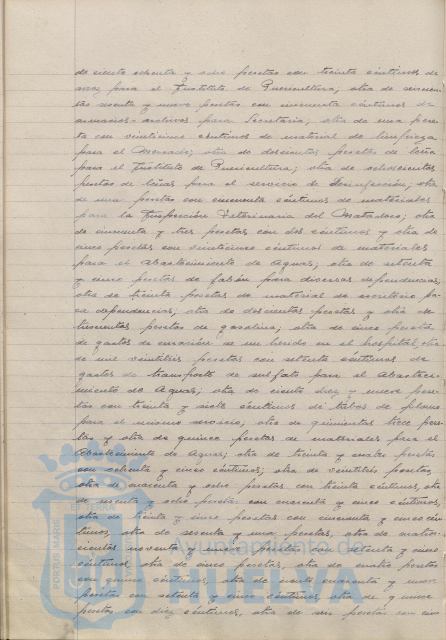 de ciento ochenta y ocho pesetas con treinta céntimos de
arroz para el Instituto de Puericultura; otra de
tas noventa y nueve pesetas con cincuenta céntimos de
armarios-archivos para Secretaría; otra de una pese-
ta con veinticinco céntimos de material de limpieza
para el Mercado; otra de doscientas pesetas de leña
para el Instituto de Puericultura; otra de ochocientas
pesetas de leñas para el servicio de desinfección; otra
de una peseta con cincuenta céntimos de materiales
para la Inspección Veterinaria del Matadero; otra
de cincuenta y tres pesetas con dos céntimos y otra de
cinco pesetas con veinticinco céntimos de materiales
para el Abastecimiento de Aguas; otra de setenta
y cinco pesetas de jabón para diversas dependencias;
otra de treinta pesetas de material de escritorio pa-
ra dependencias; otra de doscientas pesetas y otra de
trescientas pesetas de gasolina; otra de cinco pesetas
de gastos de curación de un herido en el hospital; otra
de mil veintitrés pesetas con setenta céntimos de
gastos de transporte de sulfato para el Abasteci-
miento de Aguas; otra de ciento diez y nueve pese-
tas con treinta y siete céntimos de tubos de plomo
para el mismo servicio; otra de quinientas trece pese-
tas y otra de quince pesetas de materiales para el
Abastecimiento de Aguas; otra de treinta y cuatro pesetas
con ochenta y cinco céntimos; otra de veintitrés pesetas;
otra de cuarenta y ocho pesetas con treinta céntimos; otra
de y ocho pesetas con cuarenta y cinco céntimos;
otra de treinta y cinco pesetas con cincuenta y cinco cén-
timos; otra de sesenta y una pesetas; otra de
cientas noventa y nueve pesetas con setenta y cinco
céntimos; otra de cinco pesetas; otra de cuatro pesetas
con quince céntimos; otra de ciento cuarenta y nueve
pesetas con setenta y cinco céntimos; otra de y nueve
pesetas con diez céntimos; otra de seis pesetas con cin-
PORTUS MARIS ET TERRAE
Ayuntamiento de
HUELVA